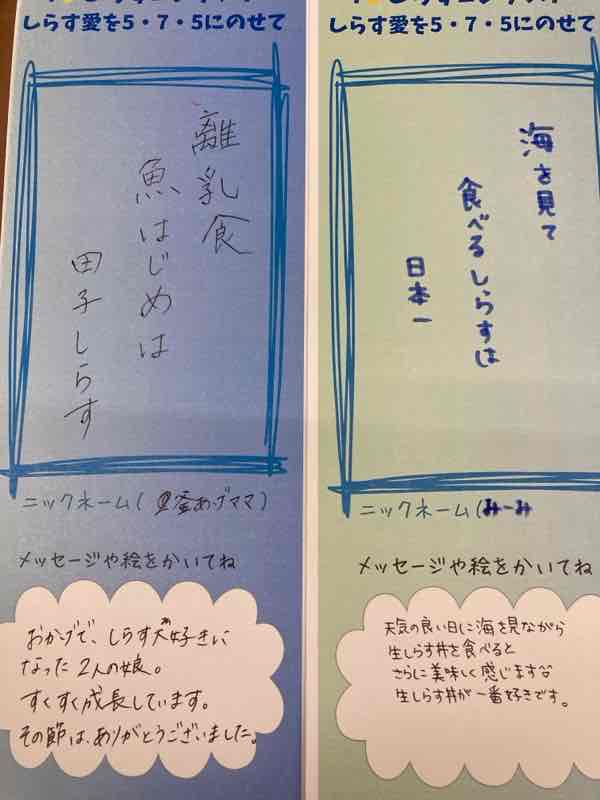 しらす愛を5・7・5にのせて
離乳食
魚はじめは
田子しらす
ニックネーム(釜あげママ)
メッセージや絵をかいてね
おかげで、しらす大好きに
なった2人の娘。
すくすく成長しています。
その節は、ありがとうございました。
しらす愛を5・7・5にのせて
海を見て
食べるしらすは
日本一
ニックネーム(みーみ
メッセージや絵をかいてね
天気の良い日に海を見ながら
生しらす丼を食べると
さらに美味しく感じます
生しらす丼が一番好きです。